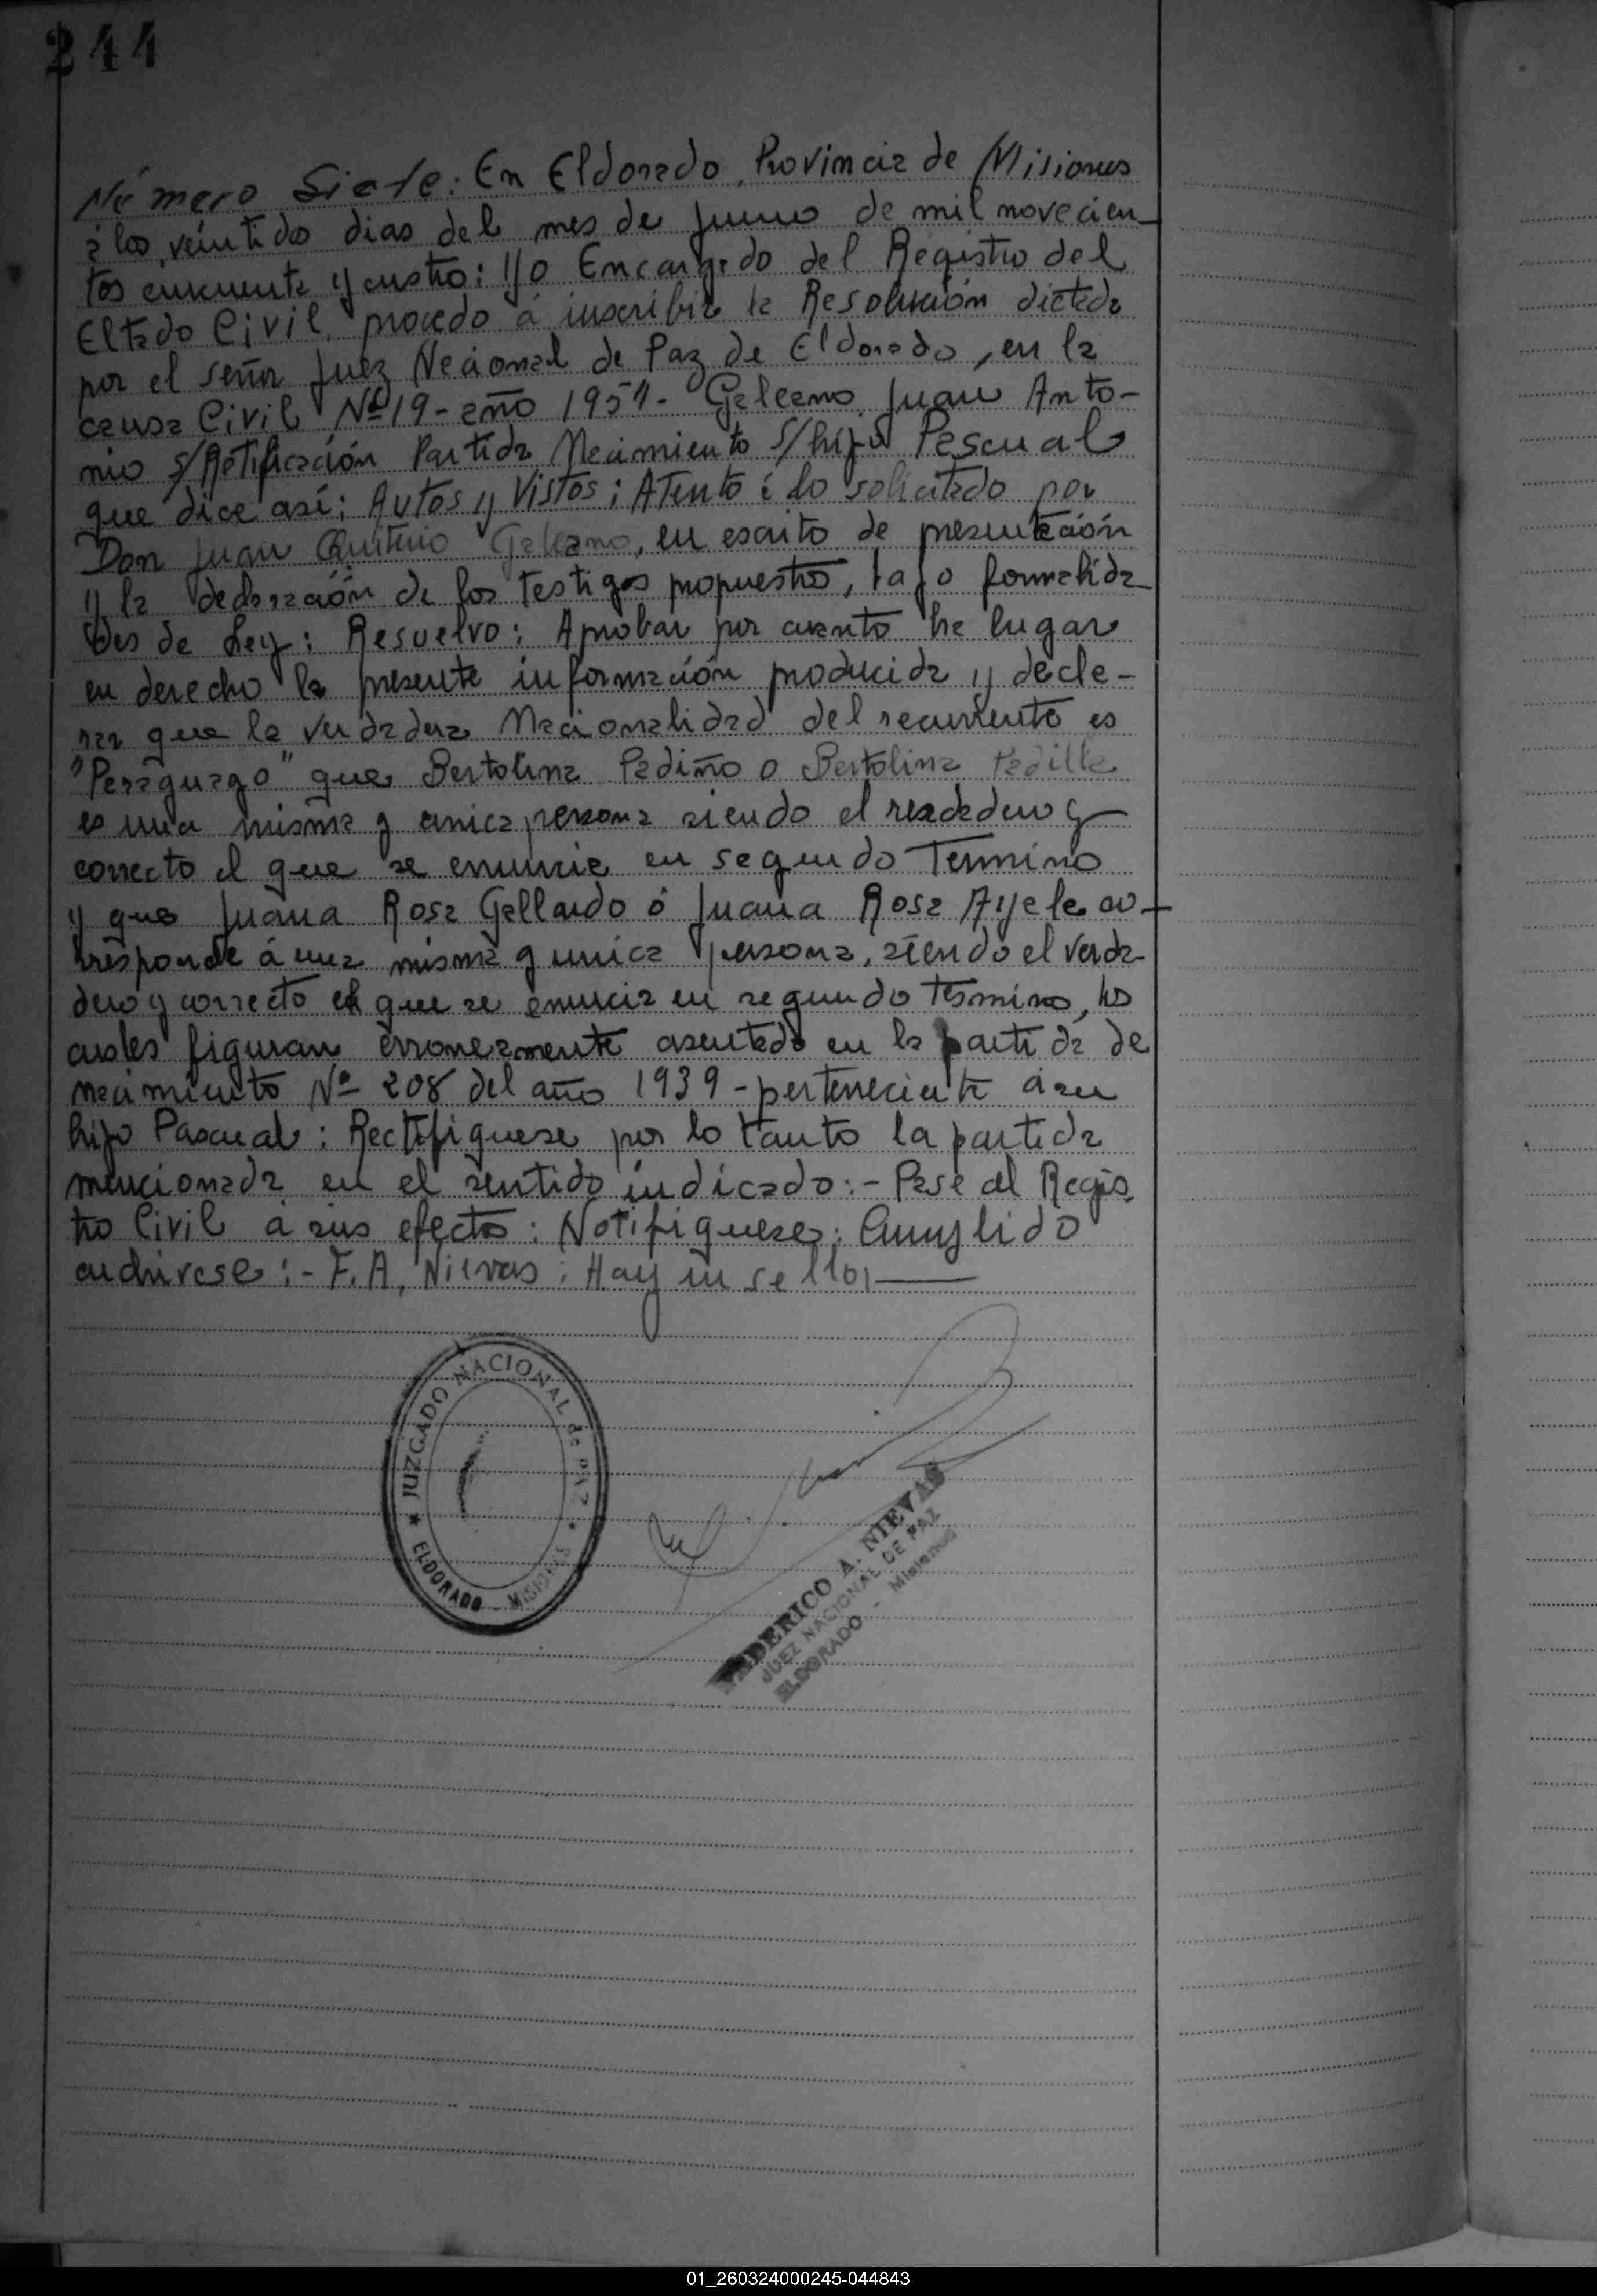 244
Número Siete: En Eldorado, Provincia de Misiones
á los veintidos dias del mes de Junio de mil novecien-
tos cincuenta y cuatro: Yo Encargado del Registro del
Estado Civil, procedo á inscribir la Resolución dictada
por el señor Juez Nacional de Paz de Eldorado, en la
causa Civil Nº 19-año 1954- Galeano Juan Anto-
nio s/Retificación Partida Nacimiento s/hijo Pascual
que dice así: Autos y Vistos: Atento á lo solicitado por
Don Juan Galeano, en escrito de presentación
y la declaración de los testigos propuestos, bajo formalida-
des de Ley: Resuelvo: Aprobar por cuanto ha lugar
en derecho la presente información producida y decla-
rar que la verdadera Nacionalidad del recurrente es
"Paraguayo" que Bertolina Padiño o Bertolina Padilla
es una misma y unica persona siendo el verdadero y
correcto el que se enuncia en segundo Termino
y que Juana Rosa Gallardo ó Juana Rosa Ayala co-
rresponde á una misma y unica persona, siendo el verda-
dero y correcto el que se enuncia en segundo termino, los
cuales figuran erroneamente asentado en la partida de
nacimiento Nº 208 del año 1939-perteneciente á su
hijo Pascual: Rectifiquese por lo tanto la partida
mencionada en el sentido indicado:- Pase al Regis
tro Civil á sus efectos: Notifiquese: Cumplido
archivese:- F. A. Nievas: Hay un sello:
JUZGADO NACIONAL de PAZ
ELDORADO - MISIONES
FEDERICO A. NIEVAS
JUEZ NACIONAL DE PAZ
ELDORADO - Misiones
01_260324000245-044843